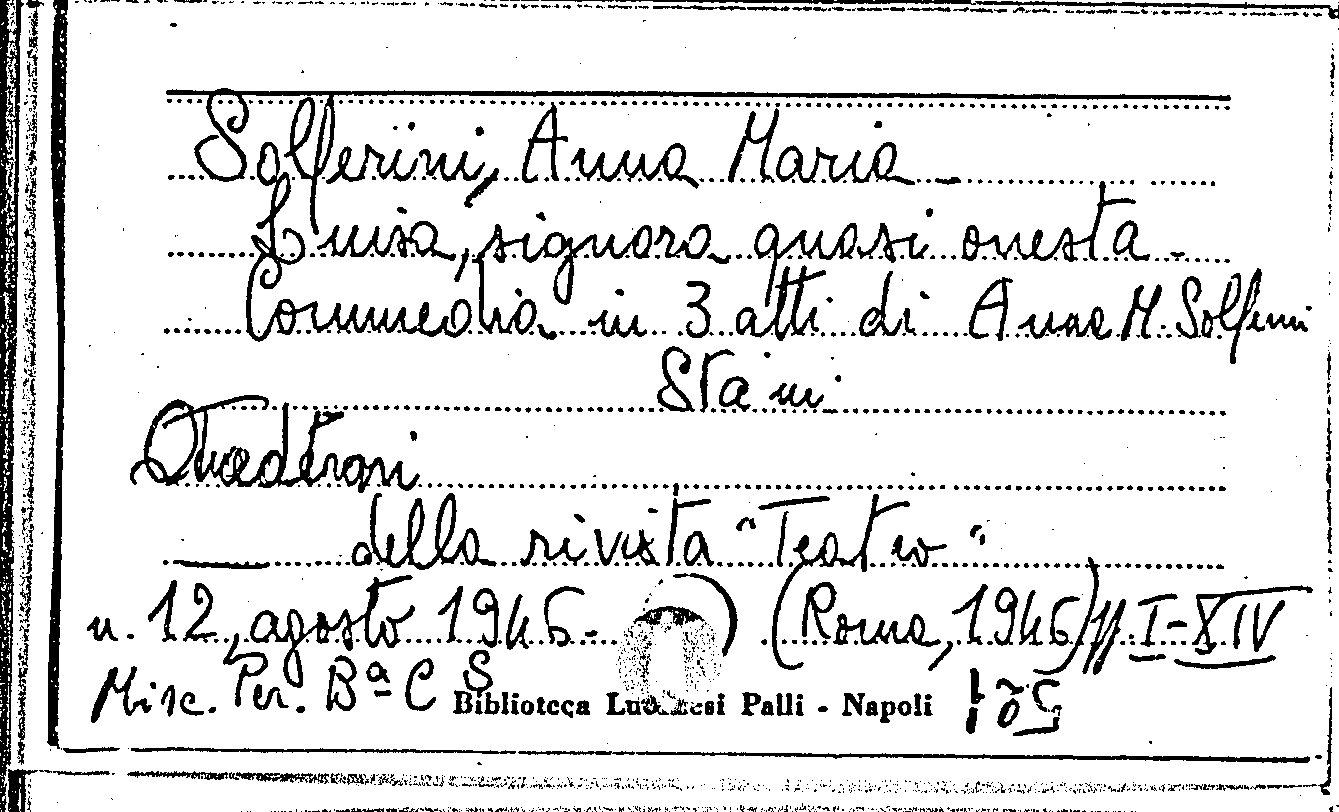 Solferini, Anna Maria
Luisa, signora quasi onesta -
Commedia in 3 atti di Anna M. Solferini
Staini
Quaderni
della rivista "Teatro"
n. 12, agosto 1946 - (Roma, 1946) pp. I-XIV
Misc. Per. Bª C S
Biblioteca Lucchesi Palli - Napoli